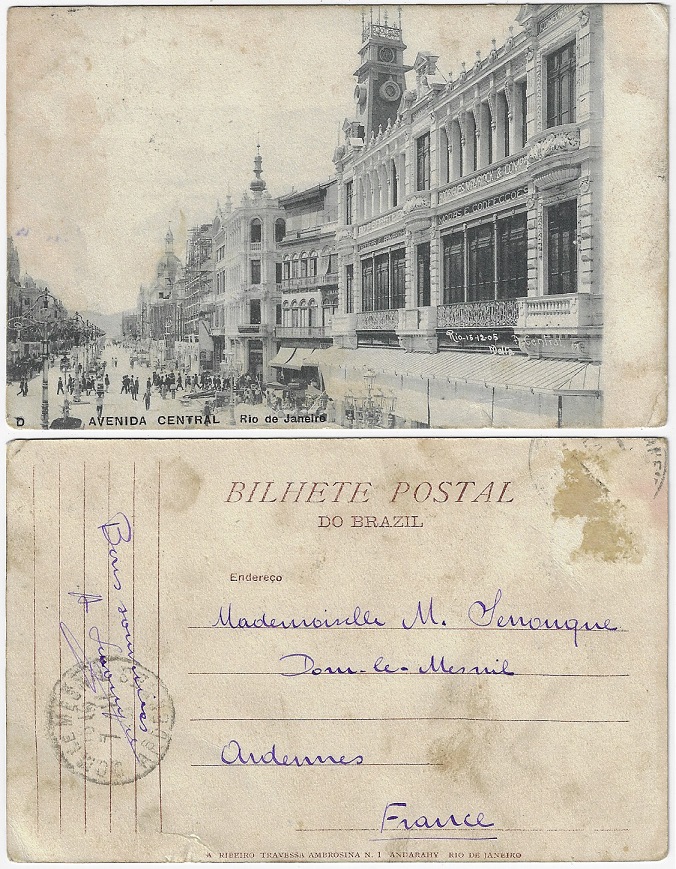 MODAS E CONFECÇOES
Rio-15-12-05
D AVENIDA CENTRAL Rio de Janeiro
BILHETE POSTAL
DO BRAZIL
Endereço
Mademoiselle M.
Dom-le-Mesnil
Ardennes
France
Bons souvenirs
A RIBEIRO TRAVESSA AMBROSINA N. 1 ANDARAHY RIO DE JANEIRO